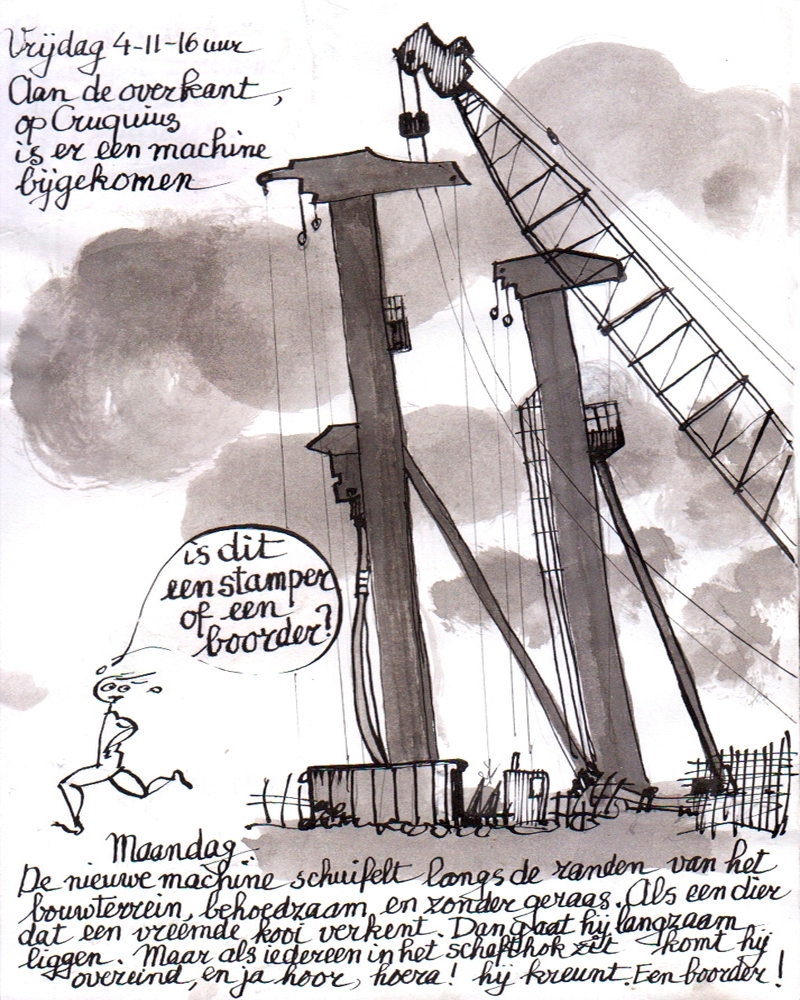 Vrijdag 4-11-16 uur
Aan de overkant,
op Cruquius
is er een machine
bijgekomen
is dit
een stamper
of een
boorder?
Maandag.
De nieuwe machine schuifelt langs de randen van het
bouwterrein, behoedzaam en zonder geraas. Als een dier
dat een vreemde kooi verkent. Dan gaat hij langzaam
liggen. Maar als iedereen in het schafthok zit komt hij
overeind, en ja hoor, hoera! hij kreunt. Een boorder!